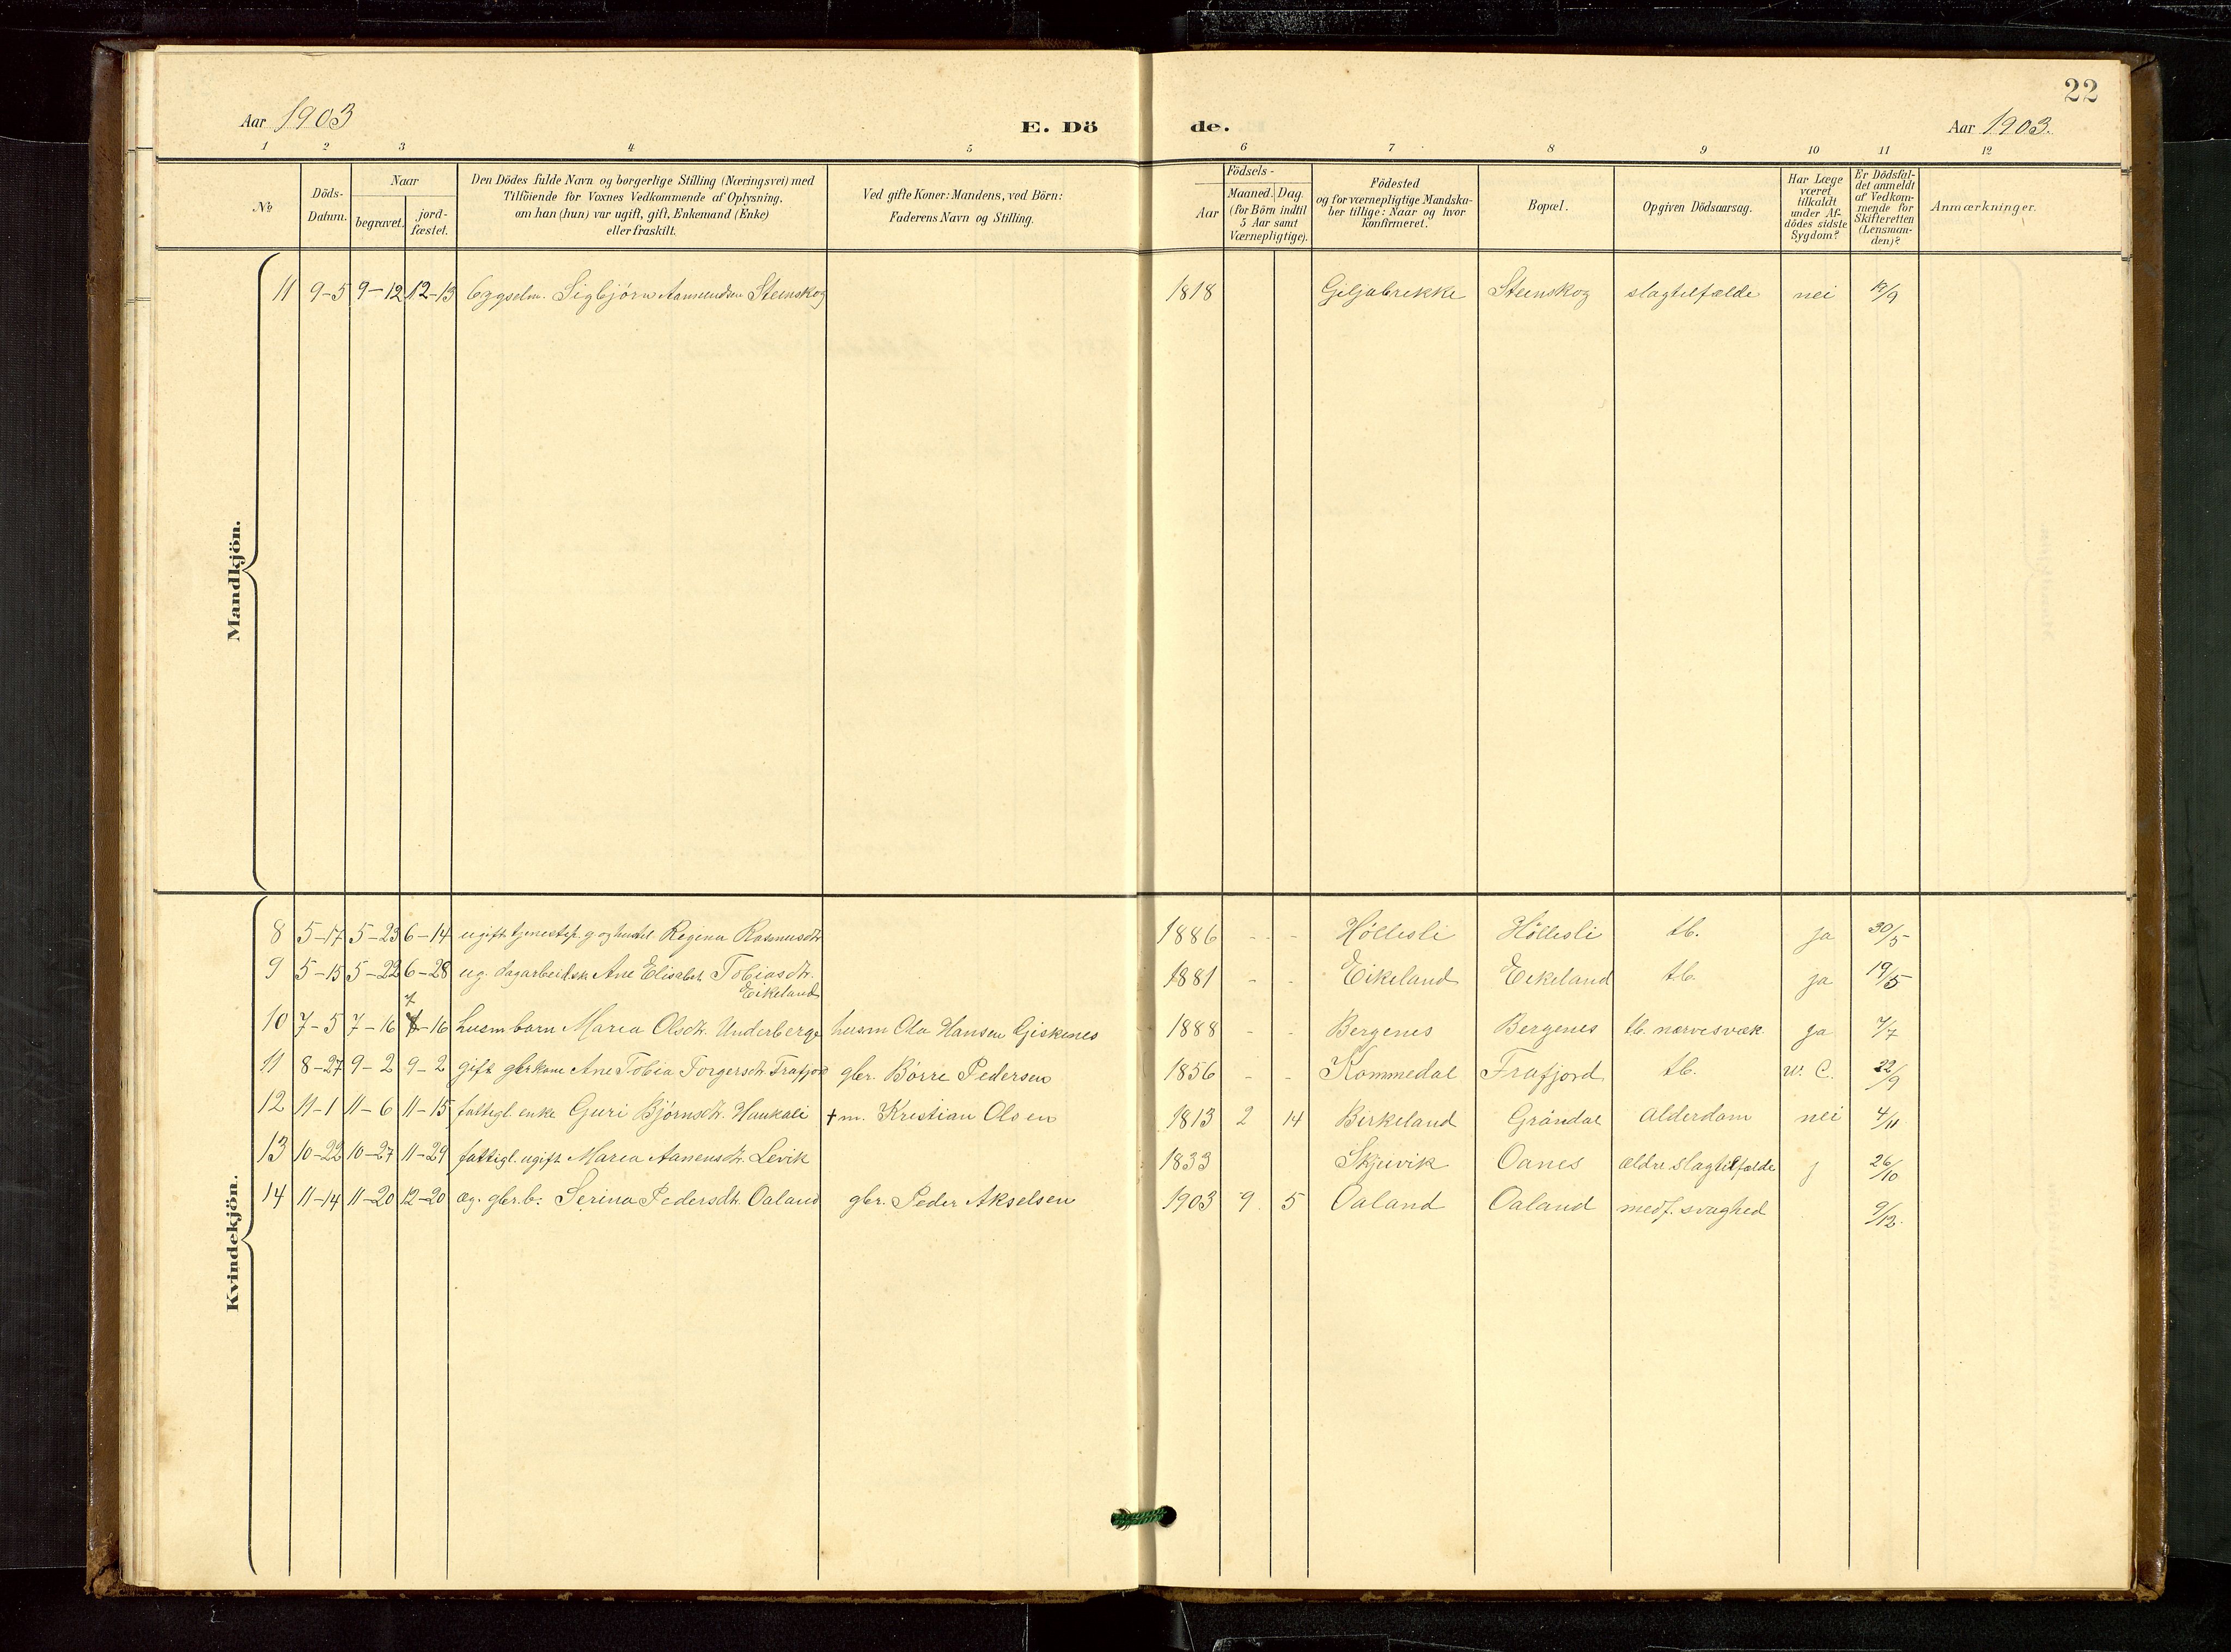 22
Aar 1903
E. Dö de.
Aar 1903.
1 2 3 4 5 6 7 8 9 10 11 12
No
Döds-
Datum.
Naar
begravet.
jord-
fæstet.
Den Dödes fulde Navn og borgerlige Stilling (Næringsvei) med
Tilföiende for Voxnes Vedkommende af Oplysning.
om han (hun) var ugift, gift, Enkemand (Enke)
eller fraskilt.
Ved gifte Koner: Mandens, ved Börn:
Faderens Navn og Stilling.
Födsels-
Aar
Maaned. Dag.
(for Börn indtil
5 Aar samt
Værnepligtige).
Födested
og for værnepligtige Mandska-
ber tillige: Naar og hvor
konfirmeret.
Bopæl.
Opgiven Dödsaarsag.
Har Læge
været
tilkaldt
under Af-
dödes sidste
Sygdom?
Er Dödsfal-
det anmeldt
af Vedkom-
mende for
Skifteretten
(Lensman-
den)?
Anmærkninger.
Mandkjön.
11 9-5 9-12 12-13 Sigbjörn Aamundsen Steinskog 1818 Giljabrekke Steinskog slagtilfælde nei 12/9
Kvindekjön.
8 5-17 5-23 6-14 ugift Regina Rasmusdtr. 1886 - - - Höllesli Höllesli tb. ja 30/5
9 5-15 5-22 6-28 ug. dagarbeidsk Ane Elisabet Tobiasdtr. 1881 - - Eikeland Eikeland tb. ja 19/5
Eikeland
7
10 7-5 7-16 -16 husm barn Maria Olsdtr. Underberge husm Ola Hansen Giskenes 1888 - - Bergenes Bergenes tb. nærvesvæk. ja 7/7
11 8-27 9-2 9-2 gift gbrkone Ane Tobia Torgersdtr. Frafjord gbr. Börre Pedersen 1856 - - Kommedal Frafjord tb. 22/9
12 11-1 11-6 11-15 fattigl. enke Guri Bjørnsdtr. Haukali + m. Kristian Olsen 1813 2 14 Birkeland Gröndal Alderdom nei 4/11
13 10-22 10-27 11-29 fattigl. ugift Maria Aanensdtr. Levik 1833 Skjeivik Oanes ældre slagtilfælde j 26/10
14 11-14 11-20 12-20 æg. gbr. b. Serina Pedersdtr. Oaland gbr. Peder Akselsen 1903 9 5 Oaland Oaland medf. svaghed 9/12.